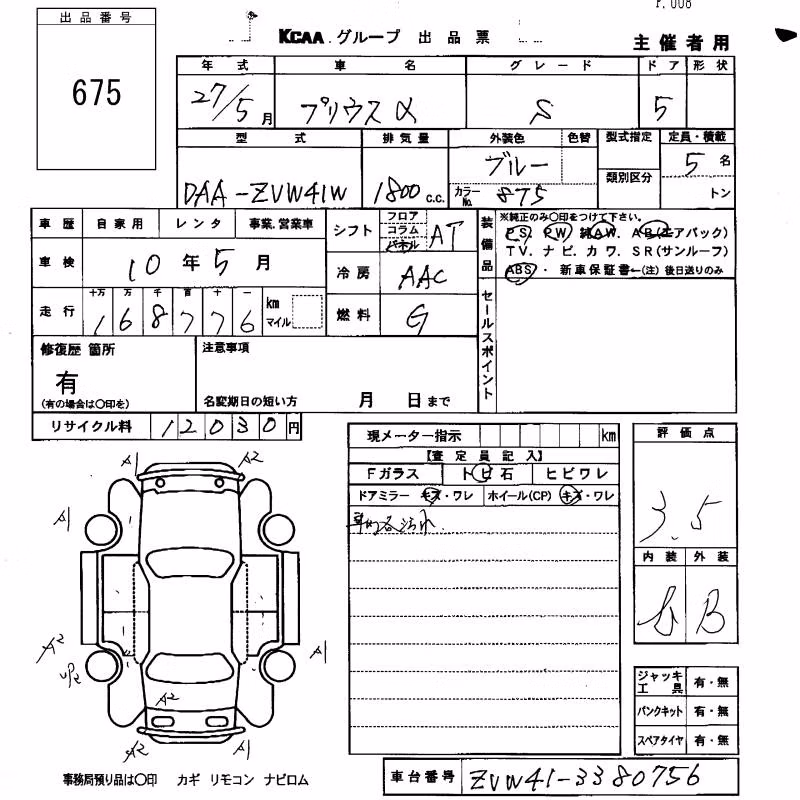 F. 008
出品番号
675
KCAA グループ 出品票
主催者用
年式 車名 グレード ドア 形状
27/5月 プリウスα S 5
型式 排気量 外装色 色替 型式指定 定員・積載
DAA-ZVW41W 1800c.c. ブルー カラーNo. 875 類別区分 5名 トン
車歴 自家用 レンタ 事業.営業車
シフト フロア コラム パネル AT
装備品 ※純正のみ〇印をつけて下さい。
PS. PW. 純AW. AB(エアバック)
TV. ナビ. カワ. SR(サンルーフ)
ABS・新車保証書←(注)後日送りのみ
車検 10年5月
冷房 AAC
走行 十万 万 千 百 十 一
168776 km マイル
燃料 G
セールスポイント
修復歴 箇所 注意事項
有
(有の場合は〇印を) 名変期日の短い方 月 日まで
リサイクル料 12030円
現メーター指示 km
【査定員記入】
Fガラス トビ石 ヒビワレ
ドアミラー キズ・ワレ ホイール(CP) キズ・ワレ
車内各汚れ
評価点
3.5
内装 外装
B
A1 A2
A1
A2
UP2
A1
A2
A2 A1
ジャッキ工具 有・無
パンクキット 有・無
スペアタイヤ 有・無
事務局預り品は〇印 カギ リモコン ナビロム
車台番号 ZVW41-3380756